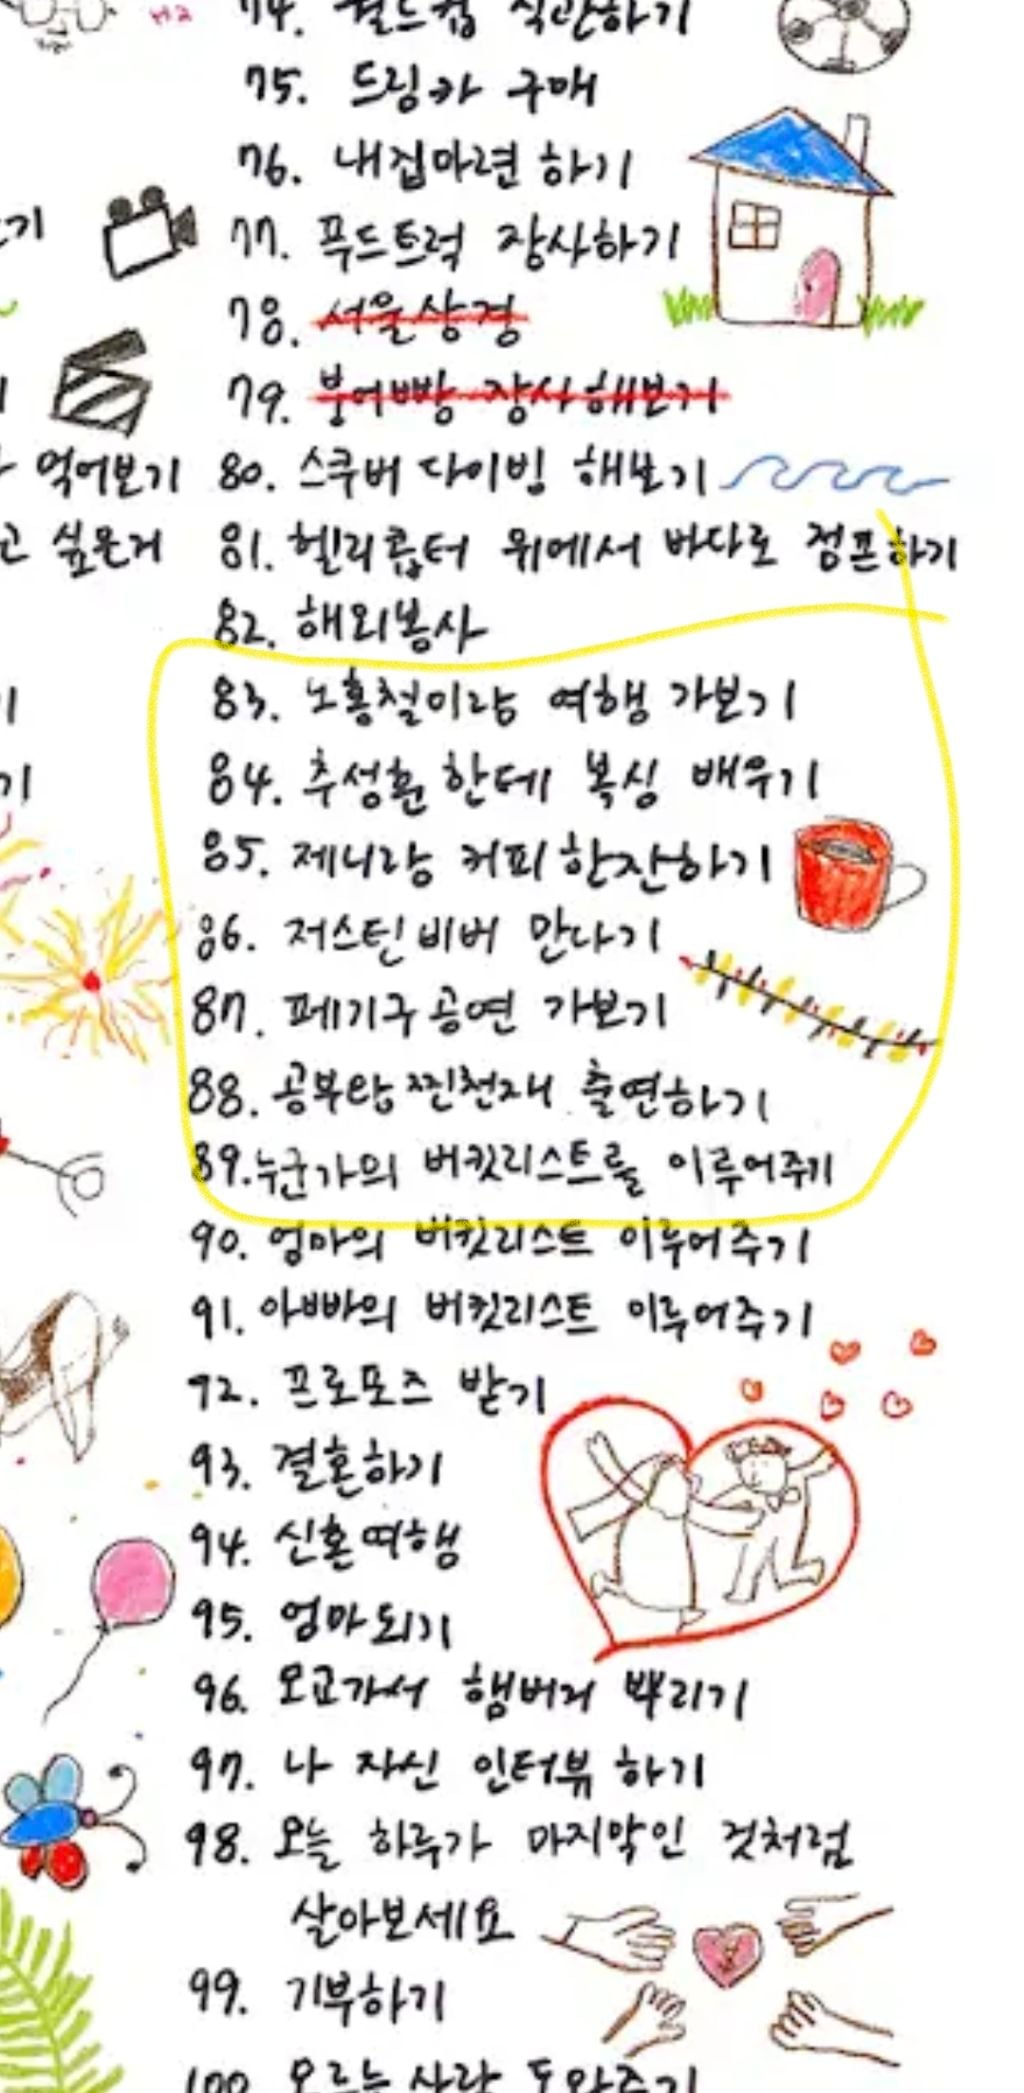 74. 월드컵 직관하기
75. 드림카 구매
76. 내집마련 하기
77. 푸드트럭 장사하기
78. 서울상경
79. 붕어빵 장사해보기
먹어보기 80. 스쿠버 다이빙 해보기
고 싶은거 81. 헬리콥터 위에서 바다로 점프하기
82. 해외봉사
83. 노홍철이랑 여행 가보기
84. 추성훈한테 복싱 배우기
85. 제니랑 커피 한잔하기
86. 저스틴비버 만나기
87. 페기구공연 가보기
88. 공부왕찐천재 출연하기
89. 누군가의 버킷리스트를 이루어주기
90. 엄마의 버킷리스트 이루어주기
91. 아빠의 버킷리스트 이루어주기
92. 프로포즈 받기
93. 결혼하기
94. 신혼여행
95. 엄마되기
96. 모교가서 햄버거 뿌리기
97. 나 자신 인터뷰 하기
98. 오늘 하루가 마지막인 것처럼
살아보세요
99. 기부하기
100. 모르는 사람 도와주기